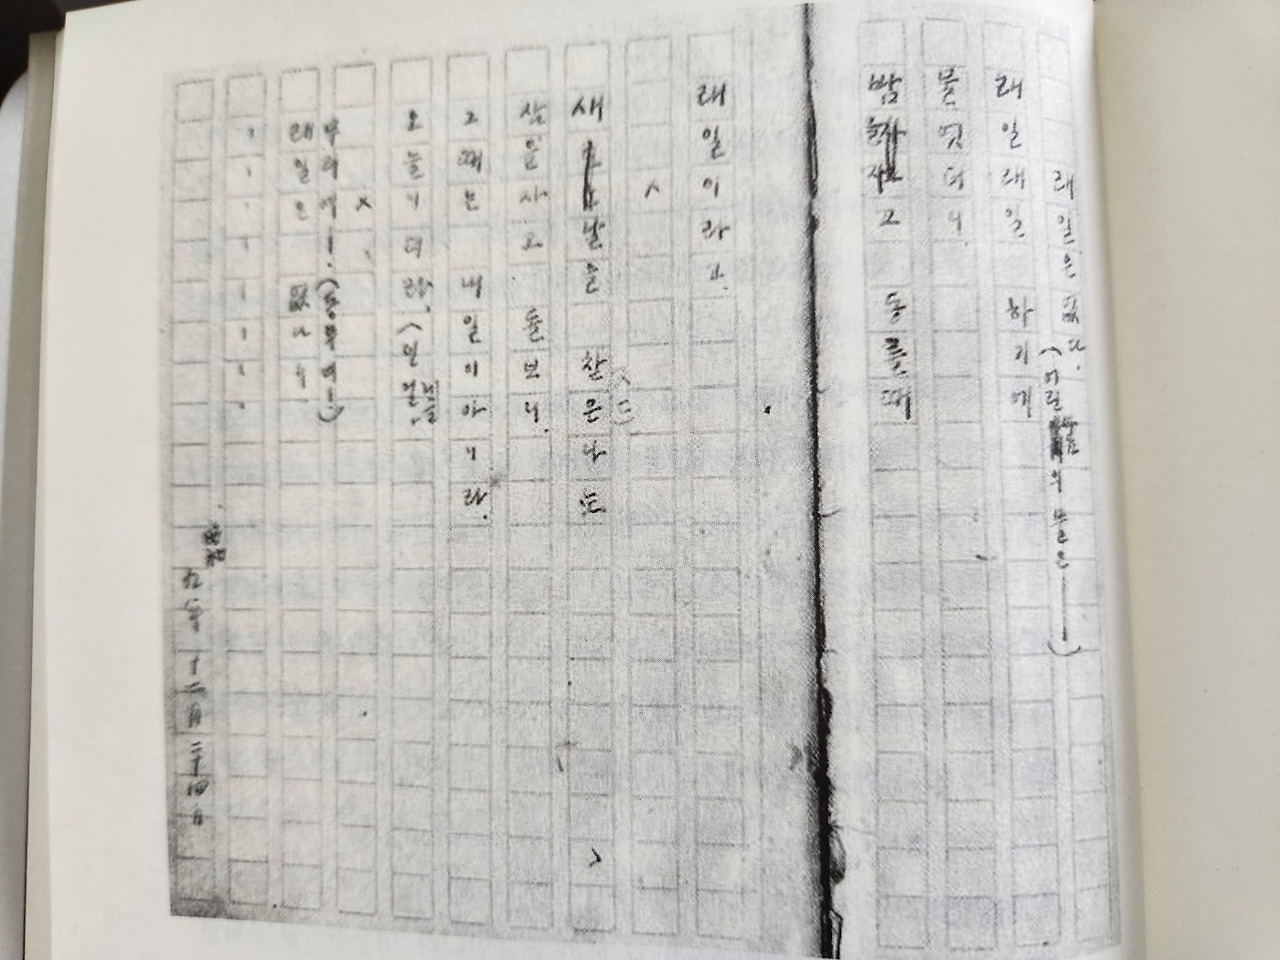 래일은 없다.
(어린 마음의 물은 ——)
래일래일 하기에
물엇더니
밤을자고 동틀때
래일이라고
×
새날을 찾은나도
잠을자고 돌보니.
그때는 내일이아니라.
오늘이더라.
×
무리여! (동무여!)
래일은 없나니